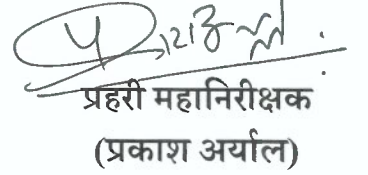 प्रहरी महानिरीक्षक
(प्रकाश अर्याल)